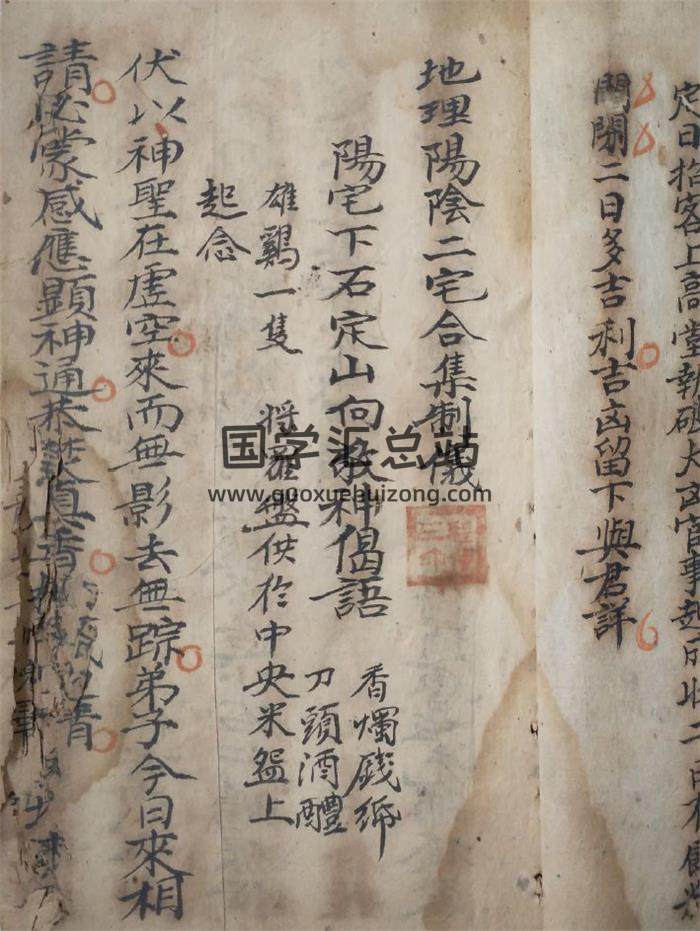 定日招客上高堂
開閉二日多吉利吉凶留下與君詳
地理陽陰二宅合集制儀
陽宅下石定山向敬神偈語
香燭錢紙
刀頭酒醴
雄鷄一隻 將羅盤供於中央米盤上
起念
伏以神聖在虛空來而無影去無踪弟子今日來相
請必蒙感應顯神通恭焚真香
国学汇总站
www.guoxuehuizong.com